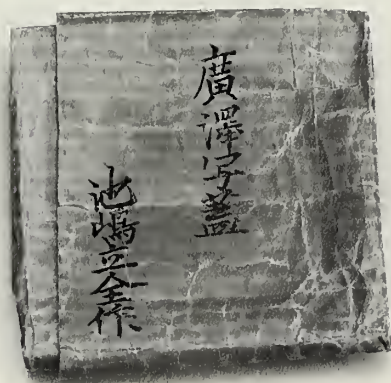 廣澤写蓋
池嶋立全作